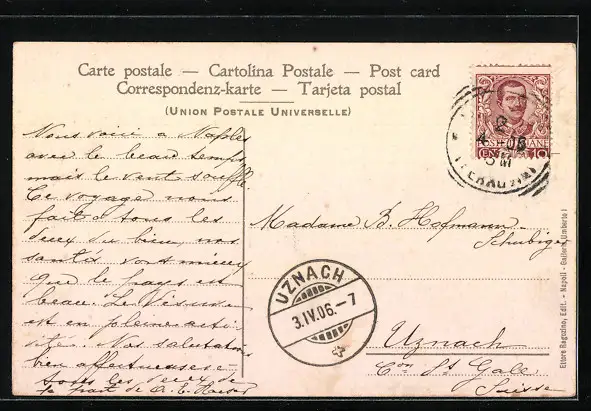 Carte postale — Cartolina Postale — Post card
Correspondenz-karte — Tarjeta postal
(UNION POSTALE UNIVERSELLE)
Nous voici a Naples
avec le beau temps
mais le vent souffle.
Ce voyage nous
fait a tous les
deux du bien, nos
santés vont mieux
que le pays est
beau. Le Vésuve
est en pleine acti
vité. Nos salutations
bien affectueuses
tous les deux de
la part de A. E.
Madame B. Hofmann-
Schubiger
Uznach
Con St Galle
Suisse
UZNACH
3.IV.06.-7
POSTE ITALIANE
CENT. 10
Ettore Ragozino, Edit. - Napoli - Galleria Umberto I